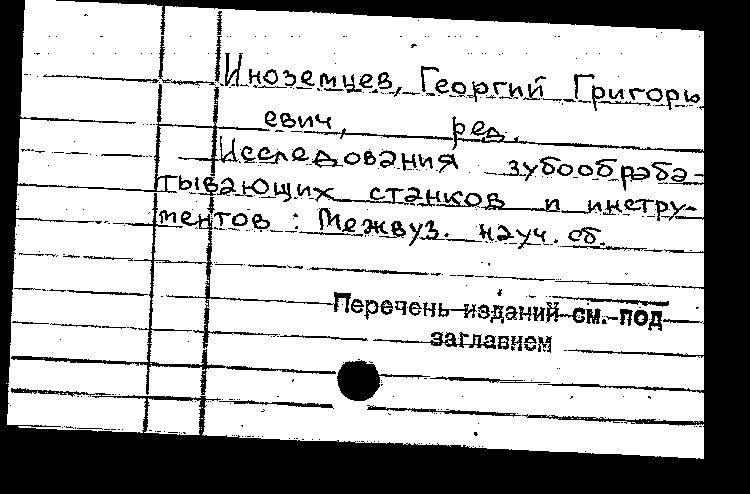 Иноземцев, Георгий Григорь
евич, ред.
Исследования зубообраба-
тывающих станков и инстру-
ментов : Межвуз. науч. сб.
Перечень изданий см. под
заглавием